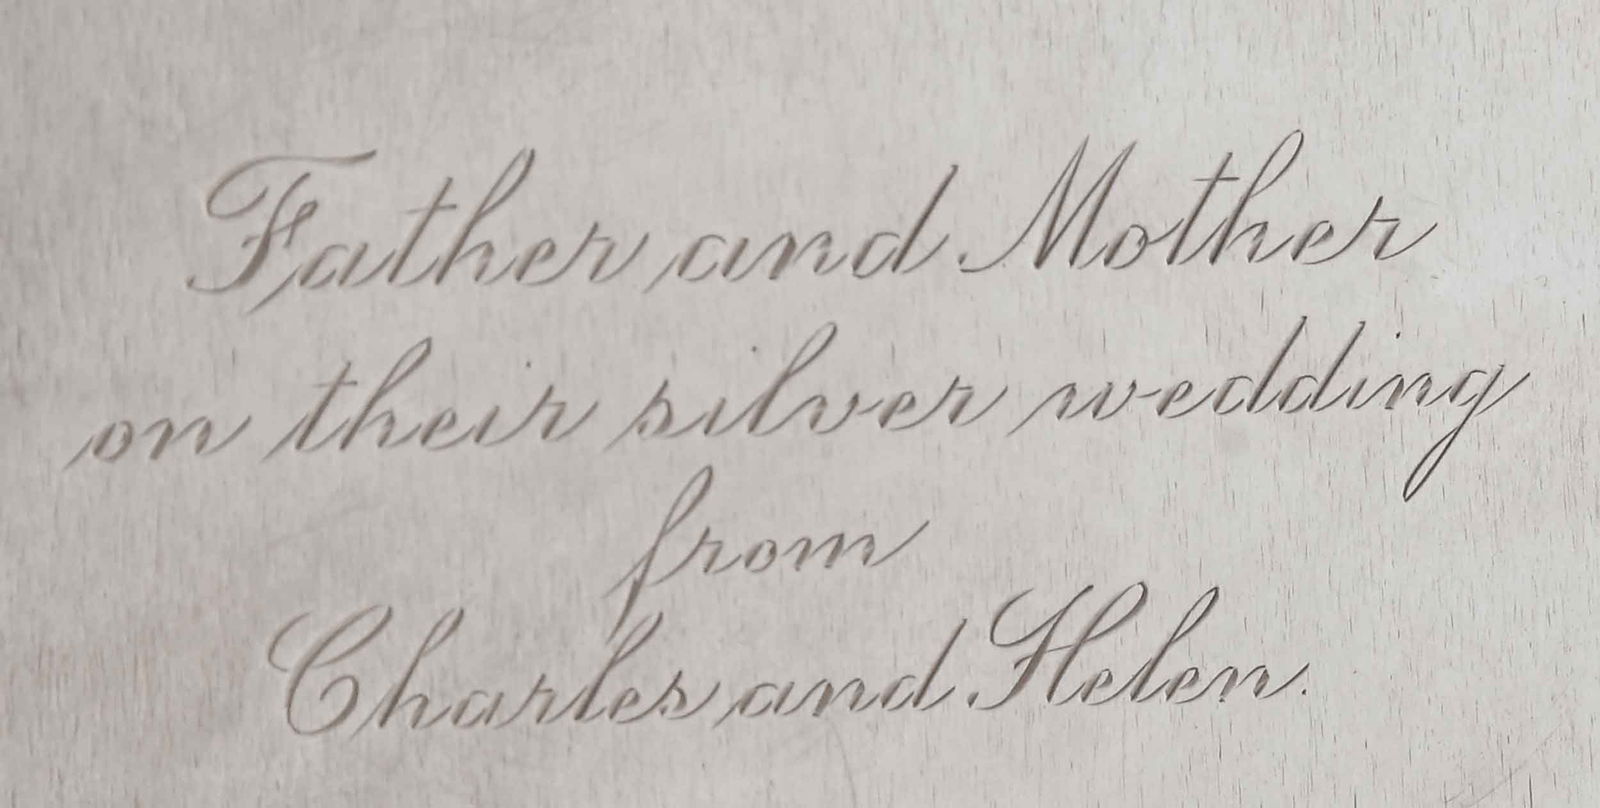 Father and Mother
on their silver wedding
from
Charles and Helen.